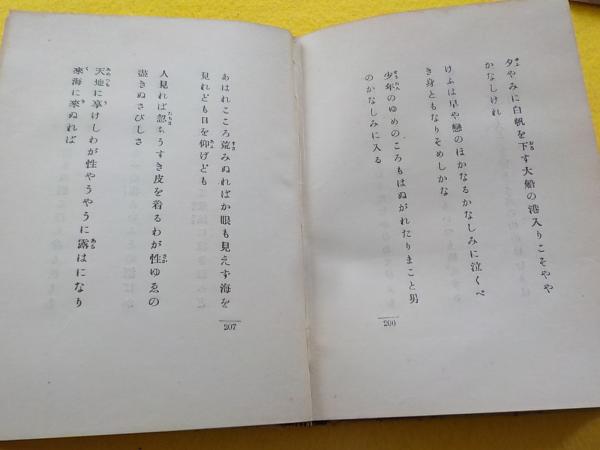 夕やみに白帆を下す大船の港入りこそやや
かなしけれ
けふは早や戀のほかなるかなしみに泣くべ
き身ともなりそめしかな
少年のゆめのころもはぬがれたりまこと男
のかなしみに入る
200
あはれこころ荒みぬればか眼も見えず海を
見れども日を仰げども
人見れば忽ちうすき皮を着るわが性ゆゑの
盡きぬさびしさ
天地に享けしわが性やうやうに露はになり
來海に來ぬれば
207